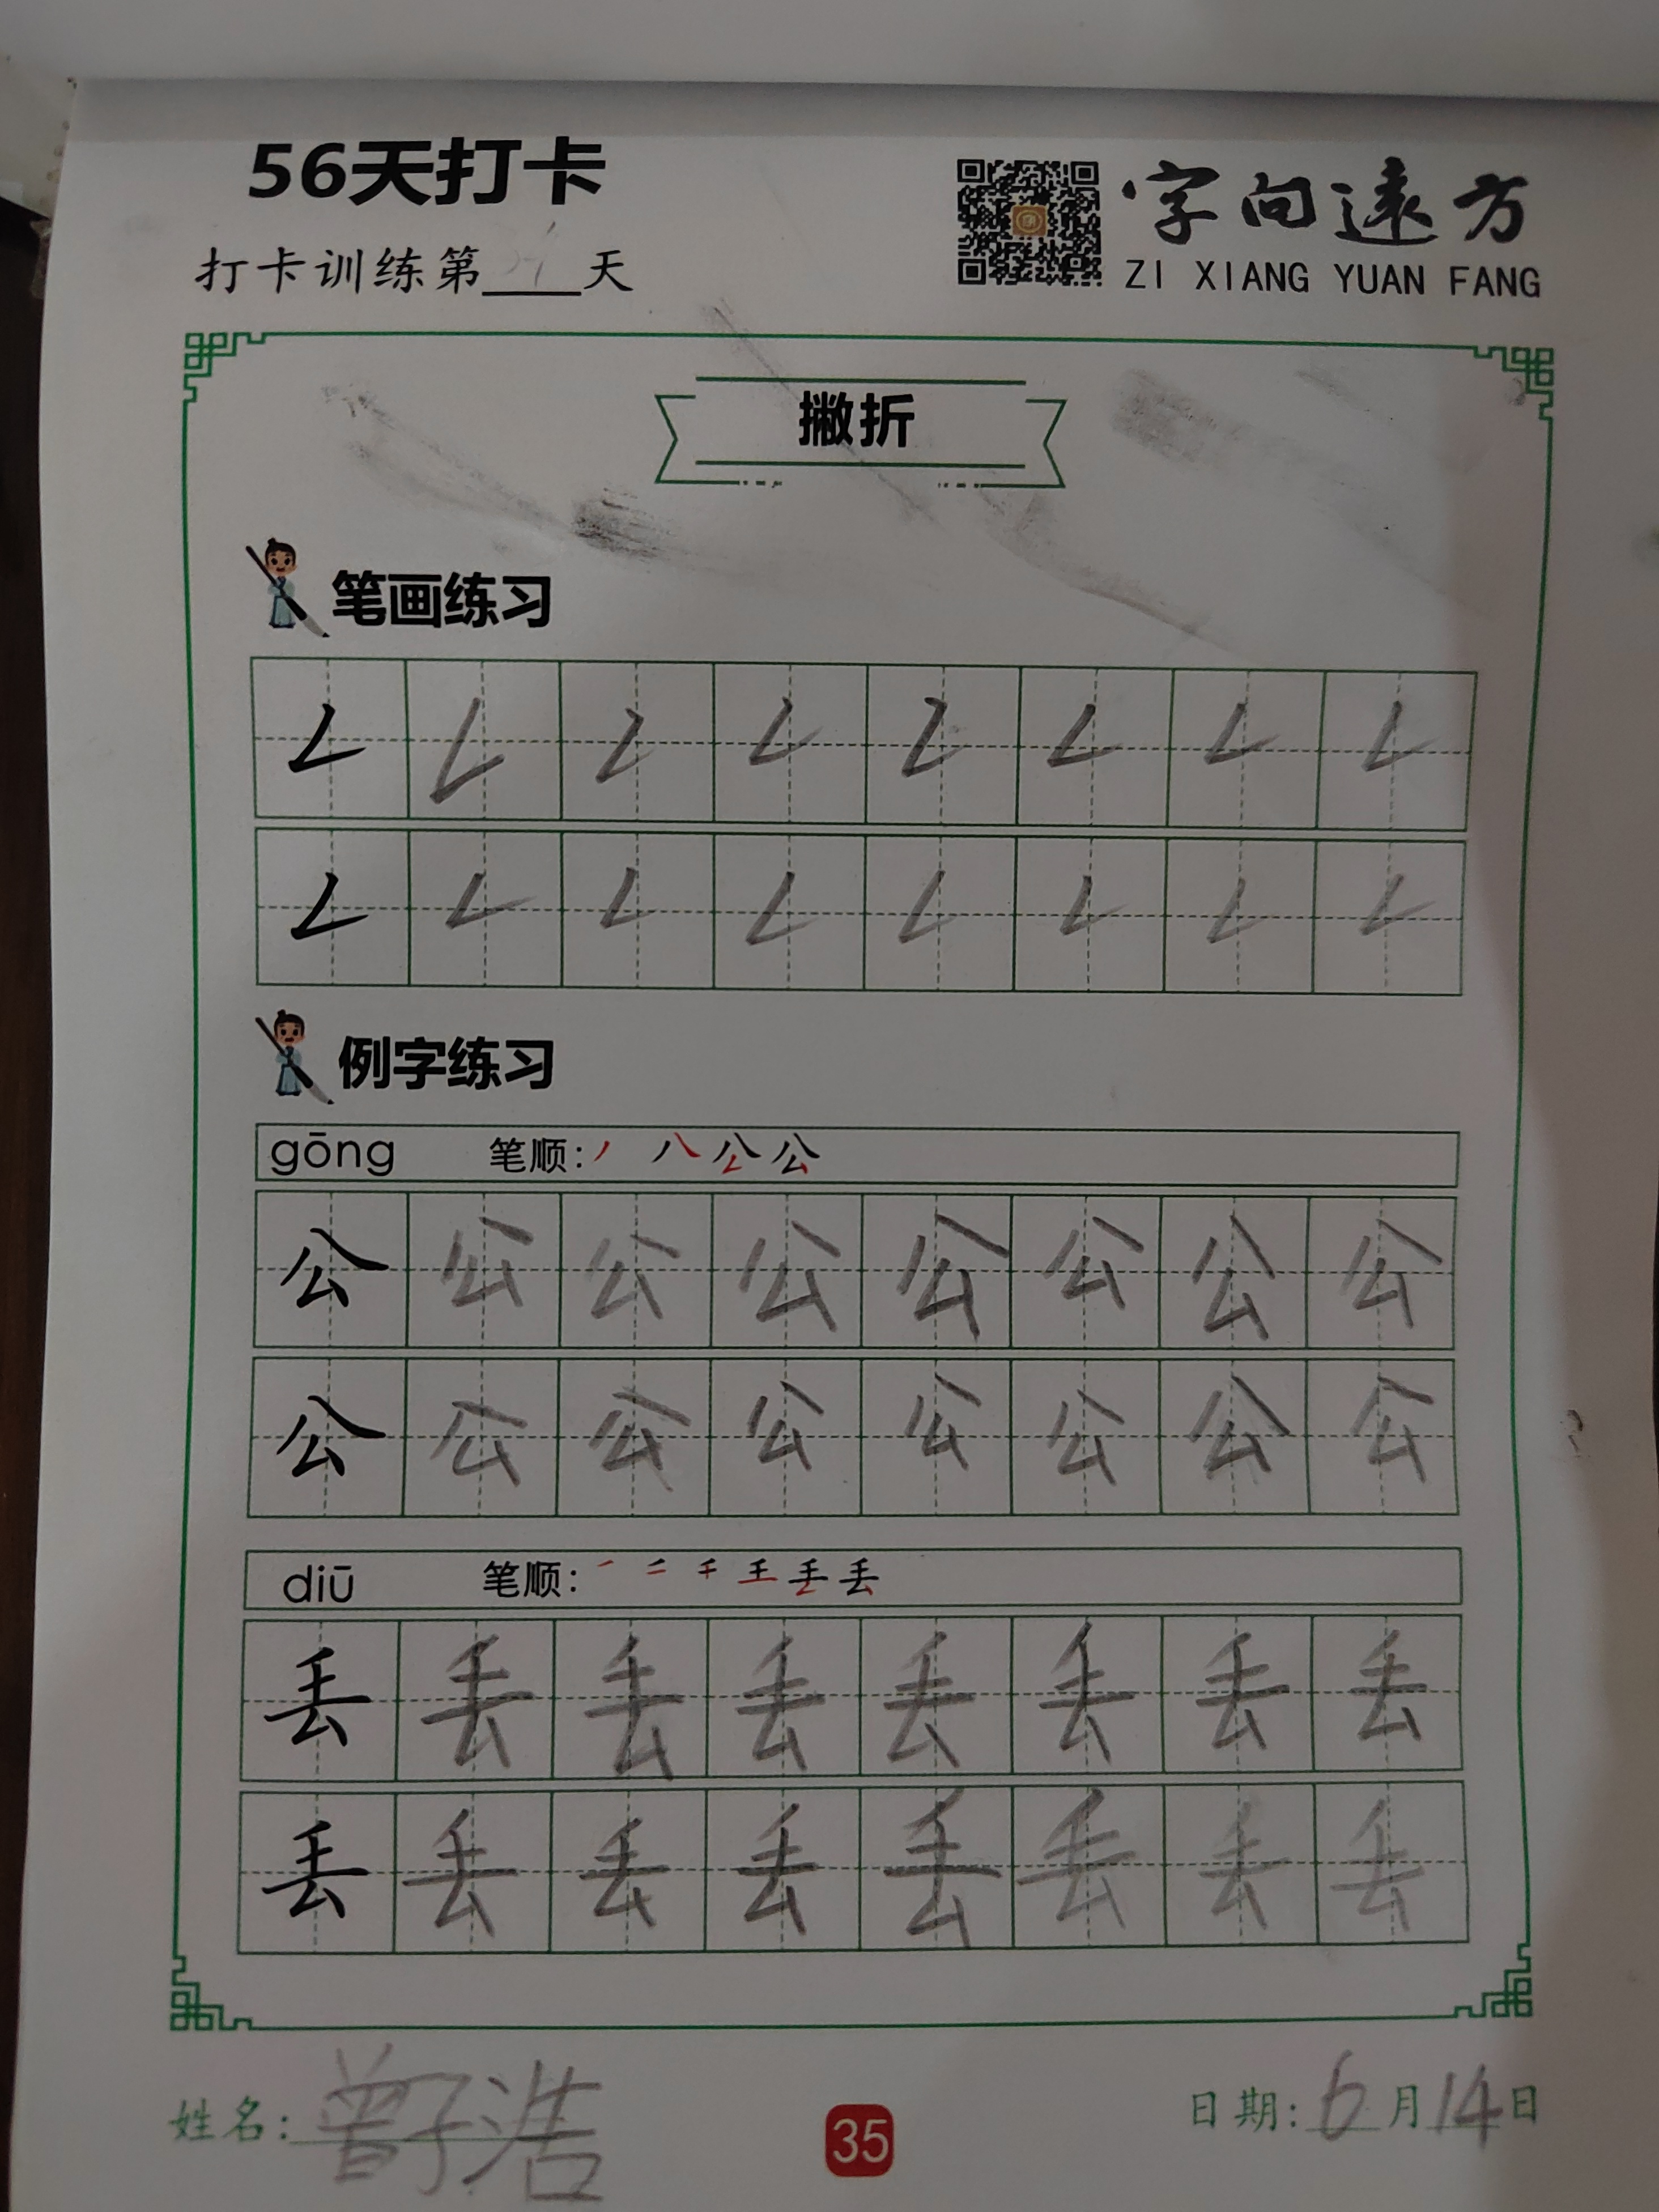 56天打卡
字向遠方
打卡训练第 天
ZI XIANG YUAN FANG
撇折
笔画练习
例字练习
gōng 笔顺: 丿 八 公 公
公 公 公 公 公 公 公 公
公 公 公 公 公 公 公 公
diū 笔顺: 丢
丢 丢 丢 丢 丢 丢 丢 丢
丢 丢 丢 丢 丢 丢 丢 丢
姓名: 曾子浩
35
日期: 6月14日